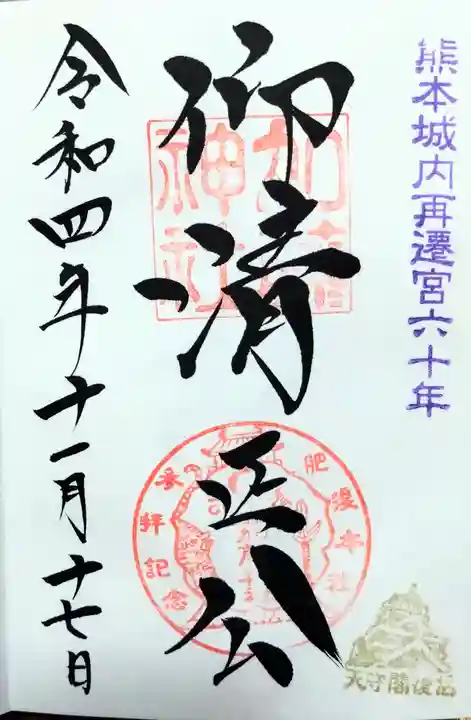 熊本城内再遷宮六十年
仰清正公
加藤神社
肥後本社
参拝記念
天守閣復活
令和四年十一月十七日